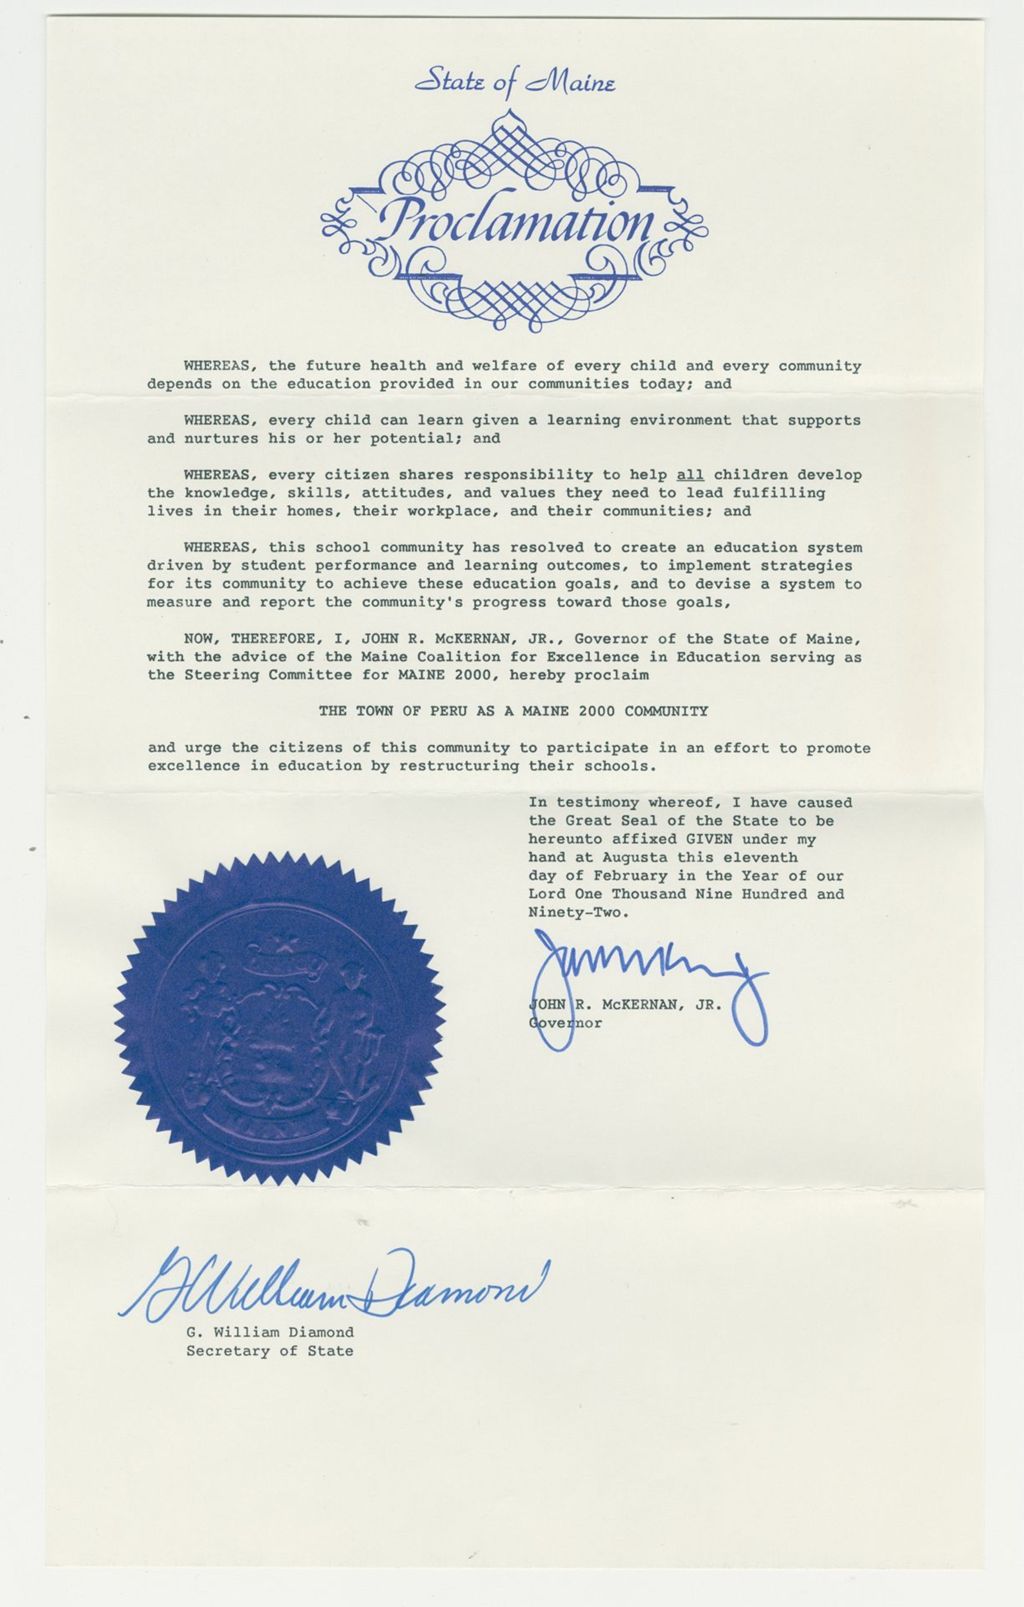 State of Maine
Proclamation
WHEREAS, the future health and welfare of every child and every community
depends on the education provided in our communities today; and
WHEREAS, every child can learn given a learning environment that supports
and nurtures his or her potential; and
WHEREAS, every citizen shares responsibility to help all children develop
the knowledge, skills, attitudes, and values they need to lead fulfilling
lives in their homes, their workplace, and their communities; and
WHEREAS, this school community has resolved to create an education system
driven by student performance and learning outcomes, to implement strategies
for its community to achieve these education goals, and to devise a system to
measure and report the community's progress toward those goals,
NOW, THEREFORE, I, JOHN R. McKERNAN, JR., Governor of the State of Maine,
with the advice of the Maine Coalition for Excellence in Education serving as
the Steering Committee for MAINE 2000, hereby proclaim
THE TOWN OF PERU AS A MAINE 2000 COMMUNITY
and urge the citizens of this community to participate in an effort to promote
excellence in education by restructuring their schools.
In testimony whereof, I have caused
the Great Seal of the State to be
hereunto affixed GIVEN under my
hand at Augusta this eleventh
day of February in the Year of our
Lord One Thousand Nine Hundred and
Ninety-Two.
JOHN R. McKERNAN, JR.
Governor
G William Diamond
G. William Diamond
Secretary of State